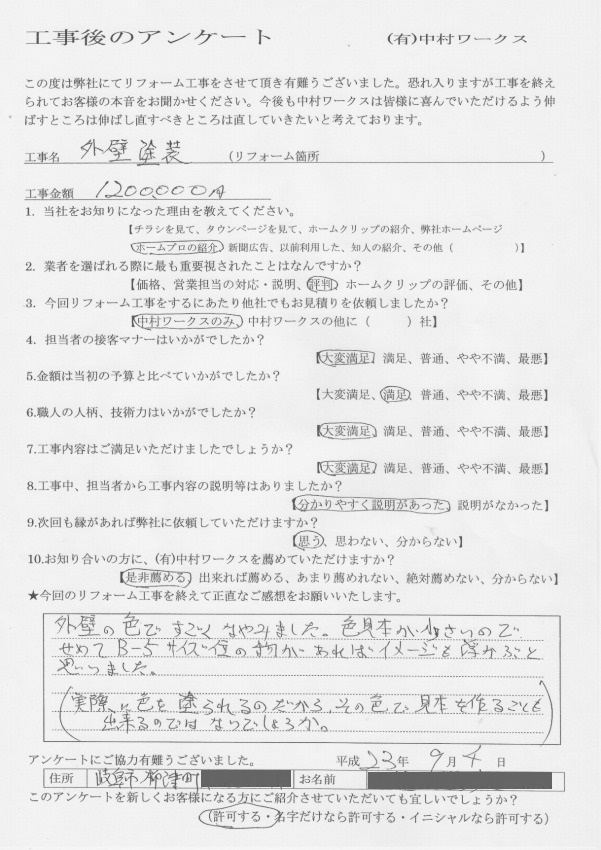 工事後のアンケート (有)中村ワークス
この度は弊社にてリフォーム工事をさせて頂き有難うございました。恐れ入りますが工事を終え
られてお客様の本音をお聞かせください。今後も中村ワークスは皆様に喜んでいただけるよう伸
ばすところは伸ばし直すべきところは直していきたいと考えております。
工事名 外壁塗装 (リフォーム箇所 )
工事金額 1200,000円
1. 当社をお知りになった理由を教えてください。
【チラシを見て、タウンページを見て、ホームクリップの紹介、弊社ホームページ
ホームプロの紹介、新聞広告、以前利用した、知人の紹介、その他 ( )】
2. 業者を選ばれる際に最も重要視されたことはなんですか?
【価格、営業担当の対応・説明、評判、ホームクリップの評価、その他】
3. 今回リフォーム工事をするにあたり他社でもお見積りを依頼しましたか?
【中村ワークスのみ、中村ワークスの他に ( ) 社】
4. 担当者の接客マナーはいかがでしたか?
【大変満足、満足、普通、やや不満、最悪】
5.金額は当初の予算と比べていかがでしたか?
【大変満足、満足、普通、やや不満、最悪】
6.職人の人柄、技術力はいかがでしたか?
【大変満足、満足、普通、やや不満、最悪】
7.工事内容はご満足いただけましたでしょうか?
【大変満足、満足、普通、やや不満、最悪】
8.工事中、担当者から工事内容の説明等はありましたか?
【分かりやすく説明があった、説明がなかった】
9.次回も縁があれば弊社に依頼していただけますか?
【思う、思わない、分からない】
10.お知り合いの方に、(有)中村ワークスを薦めていただけますか?
【是非薦める、出来れば薦める、あまり薦めれない、絶対薦めない、分からない】
★今回のリフォーム工事を終えて正直なご感想をお願いいたします。
外壁の色ですごくなやみました。色見本が小さいので
せめてB-5サイズ位の物があればイメージも浮かぶと
思いました。
(実際に色を塗られるのだから、その色で見本を作ることも
出来るのではないでしょうか。)
アンケートにご協力有難うございました。 平成 23年 9月 4日
住所 岐阜市柳津町 お名前
このアンケートを新しくお客様になる方にご紹介させていただいても宜しいでしょうか?
(許可する・名字だけなら許可する・イニシャルなら許可する)